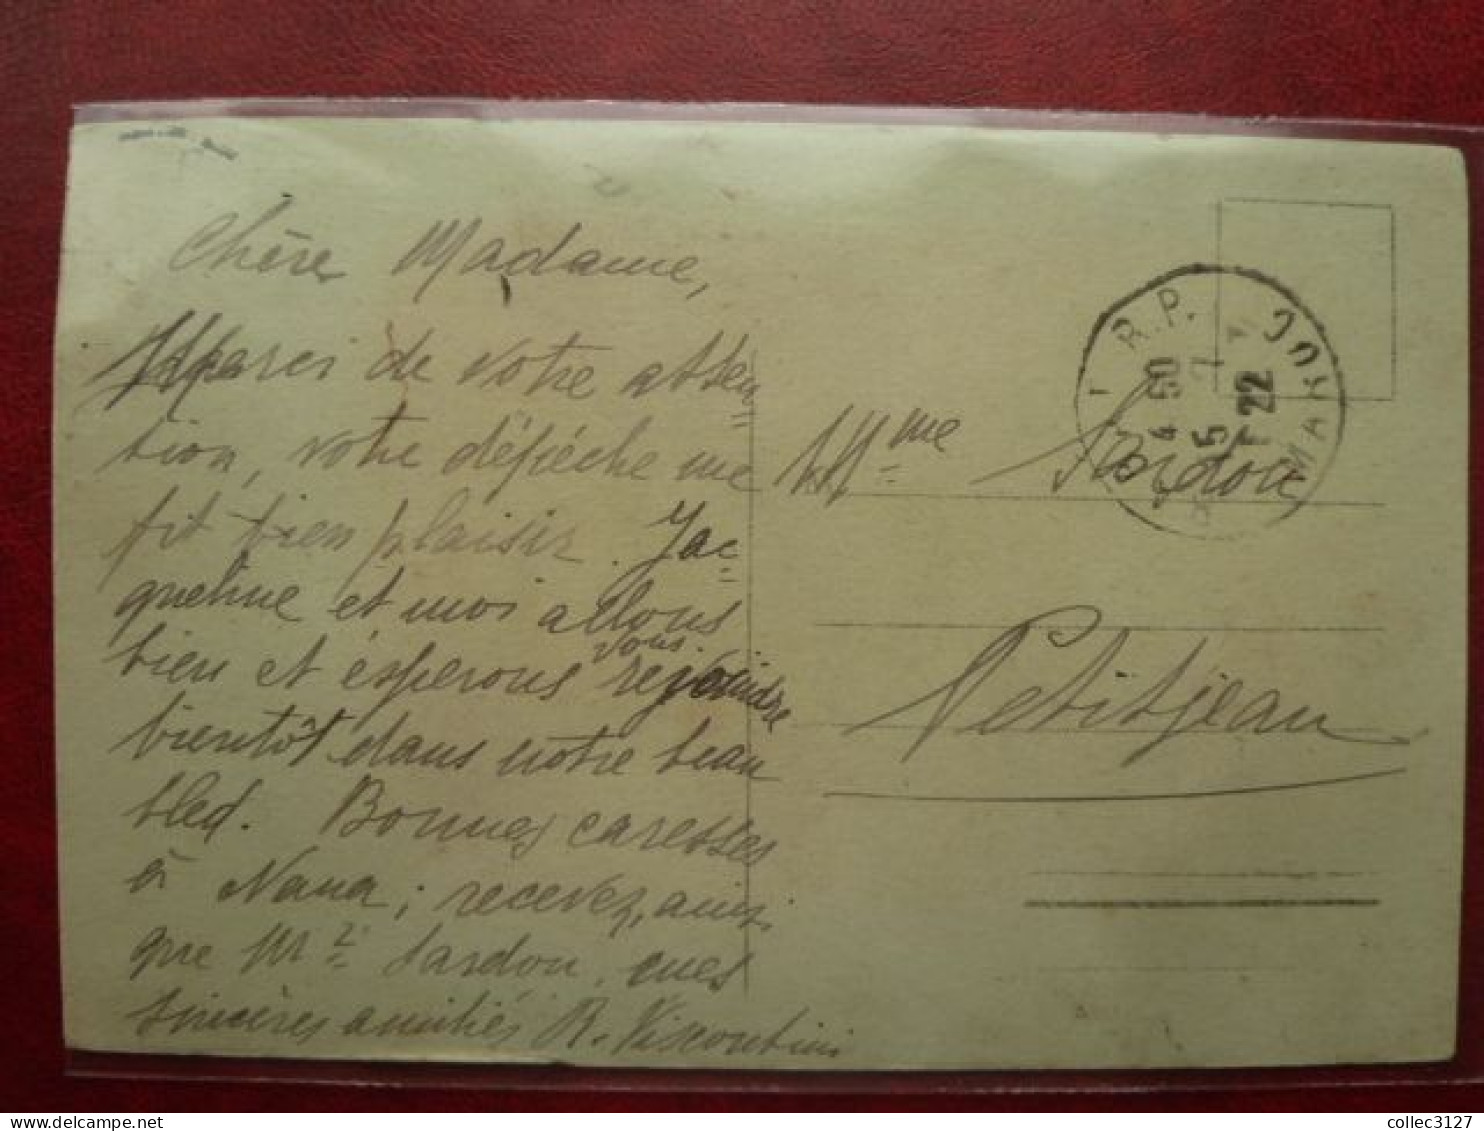 Chère Madame,
de votre atten-
tion, votre dépêche me
fit bien plaisir. Jac-
queline et moi allons
bien et ésperons vous rejoindre
bientôt dans notre beau
bled. Bonnes caresses
à Nana; recevez, ainsi
que Mr Sardou, mes
sincères amitiés R. Viscontini
Mme Sardou
Petitjean
R.P.
22
collec3127